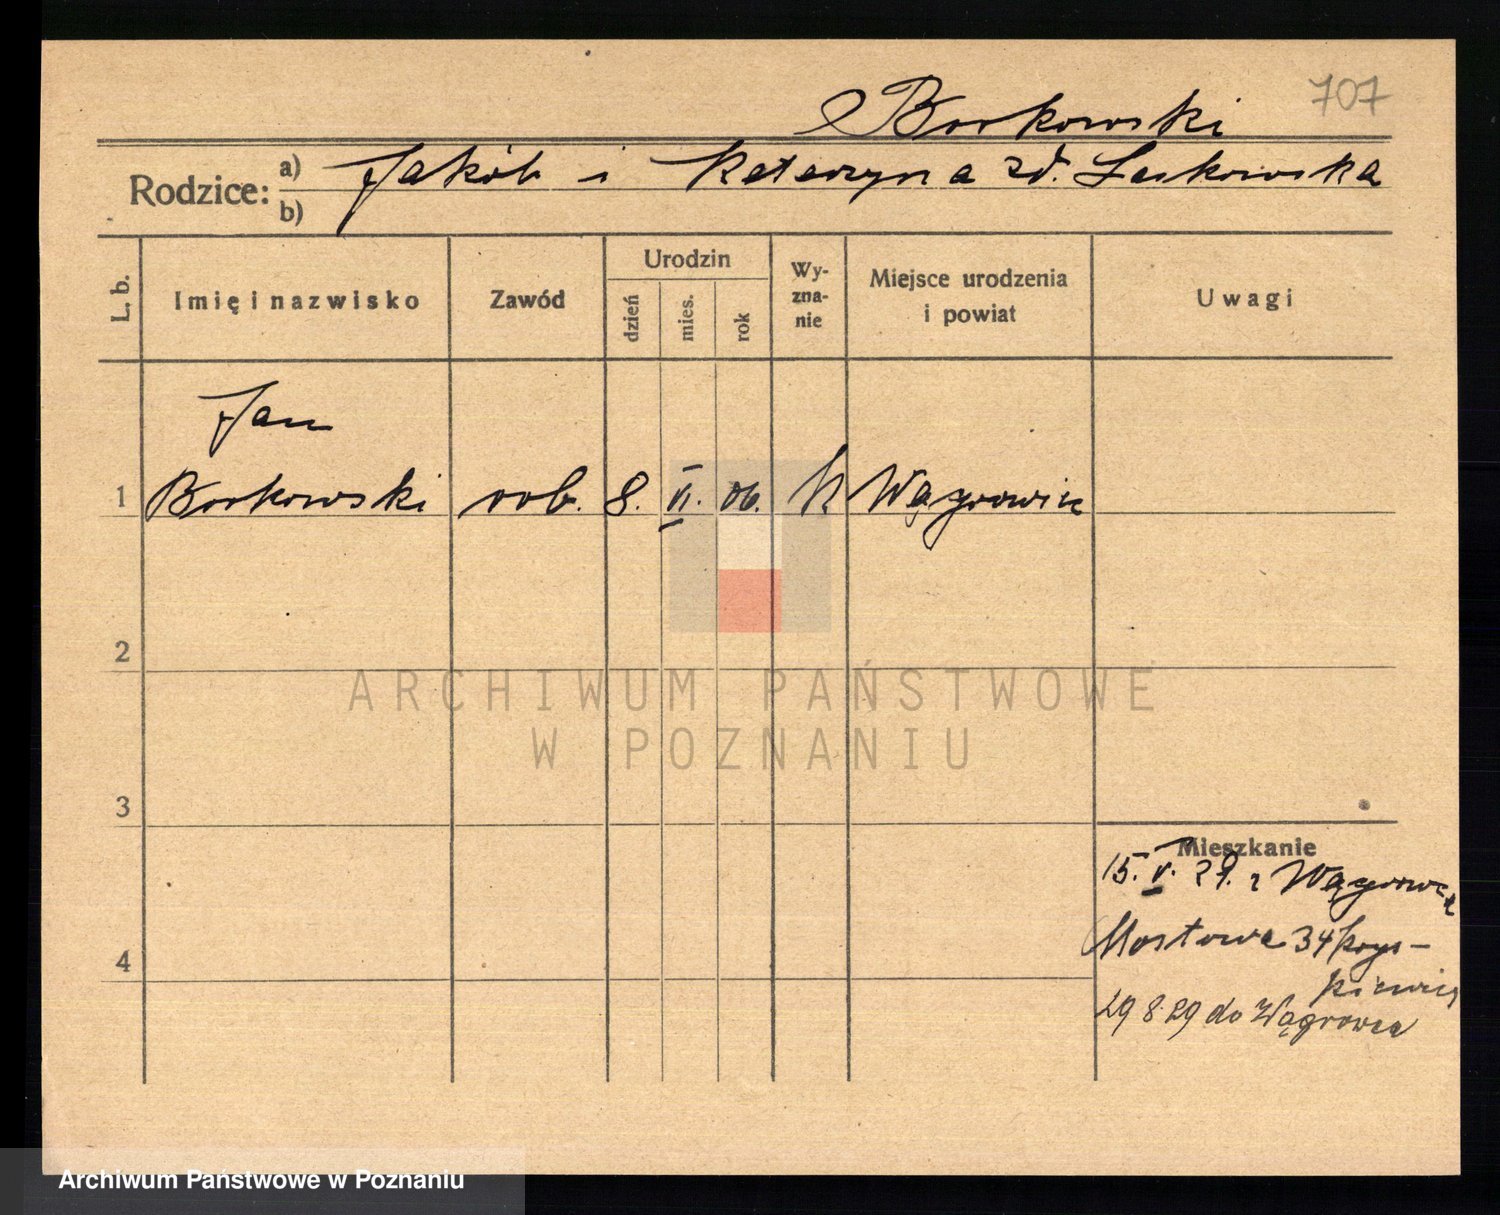 Borkowski
707
Rodzice: a) Jakób i Katarzyna zd. Laskowska
b)
L. b.
Imię i nazwisko
Zawód
Urodzin
dzień
mies.
rok
Wy-
zna-
nie
Miejsce urodzenia
i powiat
Uwagi
Jan
1 Borkowski rob. 8. VI. 06. K Wągrowiec
2
ARCHIWUM PAŃSTWOWE
W POZNANIU
3
Mieszkanie
15. V. 29. z Wągrowca
Mostowa 34
4
29 8 29 do Wągrowca
Archiwum Państwowe w Poznaniu